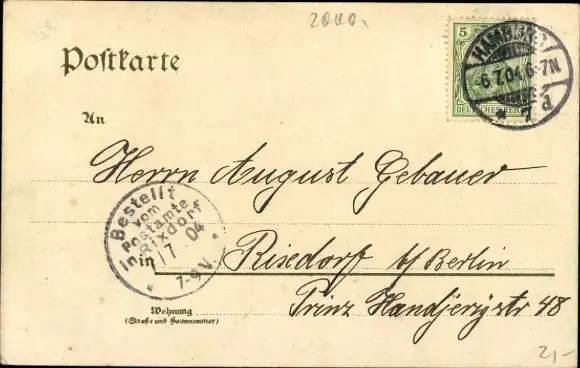 2000,-
Postkarte
5
DEUTSCHES REICH
HAMBURG
6.7.04.6-7N
* 7 d
An
Herrn August Gebauer
Bestellt
vom
Postamte
in Rixdorf
7 04
7-9V.
in
Rixdorf b/Berlin
Prinz Handjerystr 48
Wohnung
(Straße und Hausnummer)
2,-